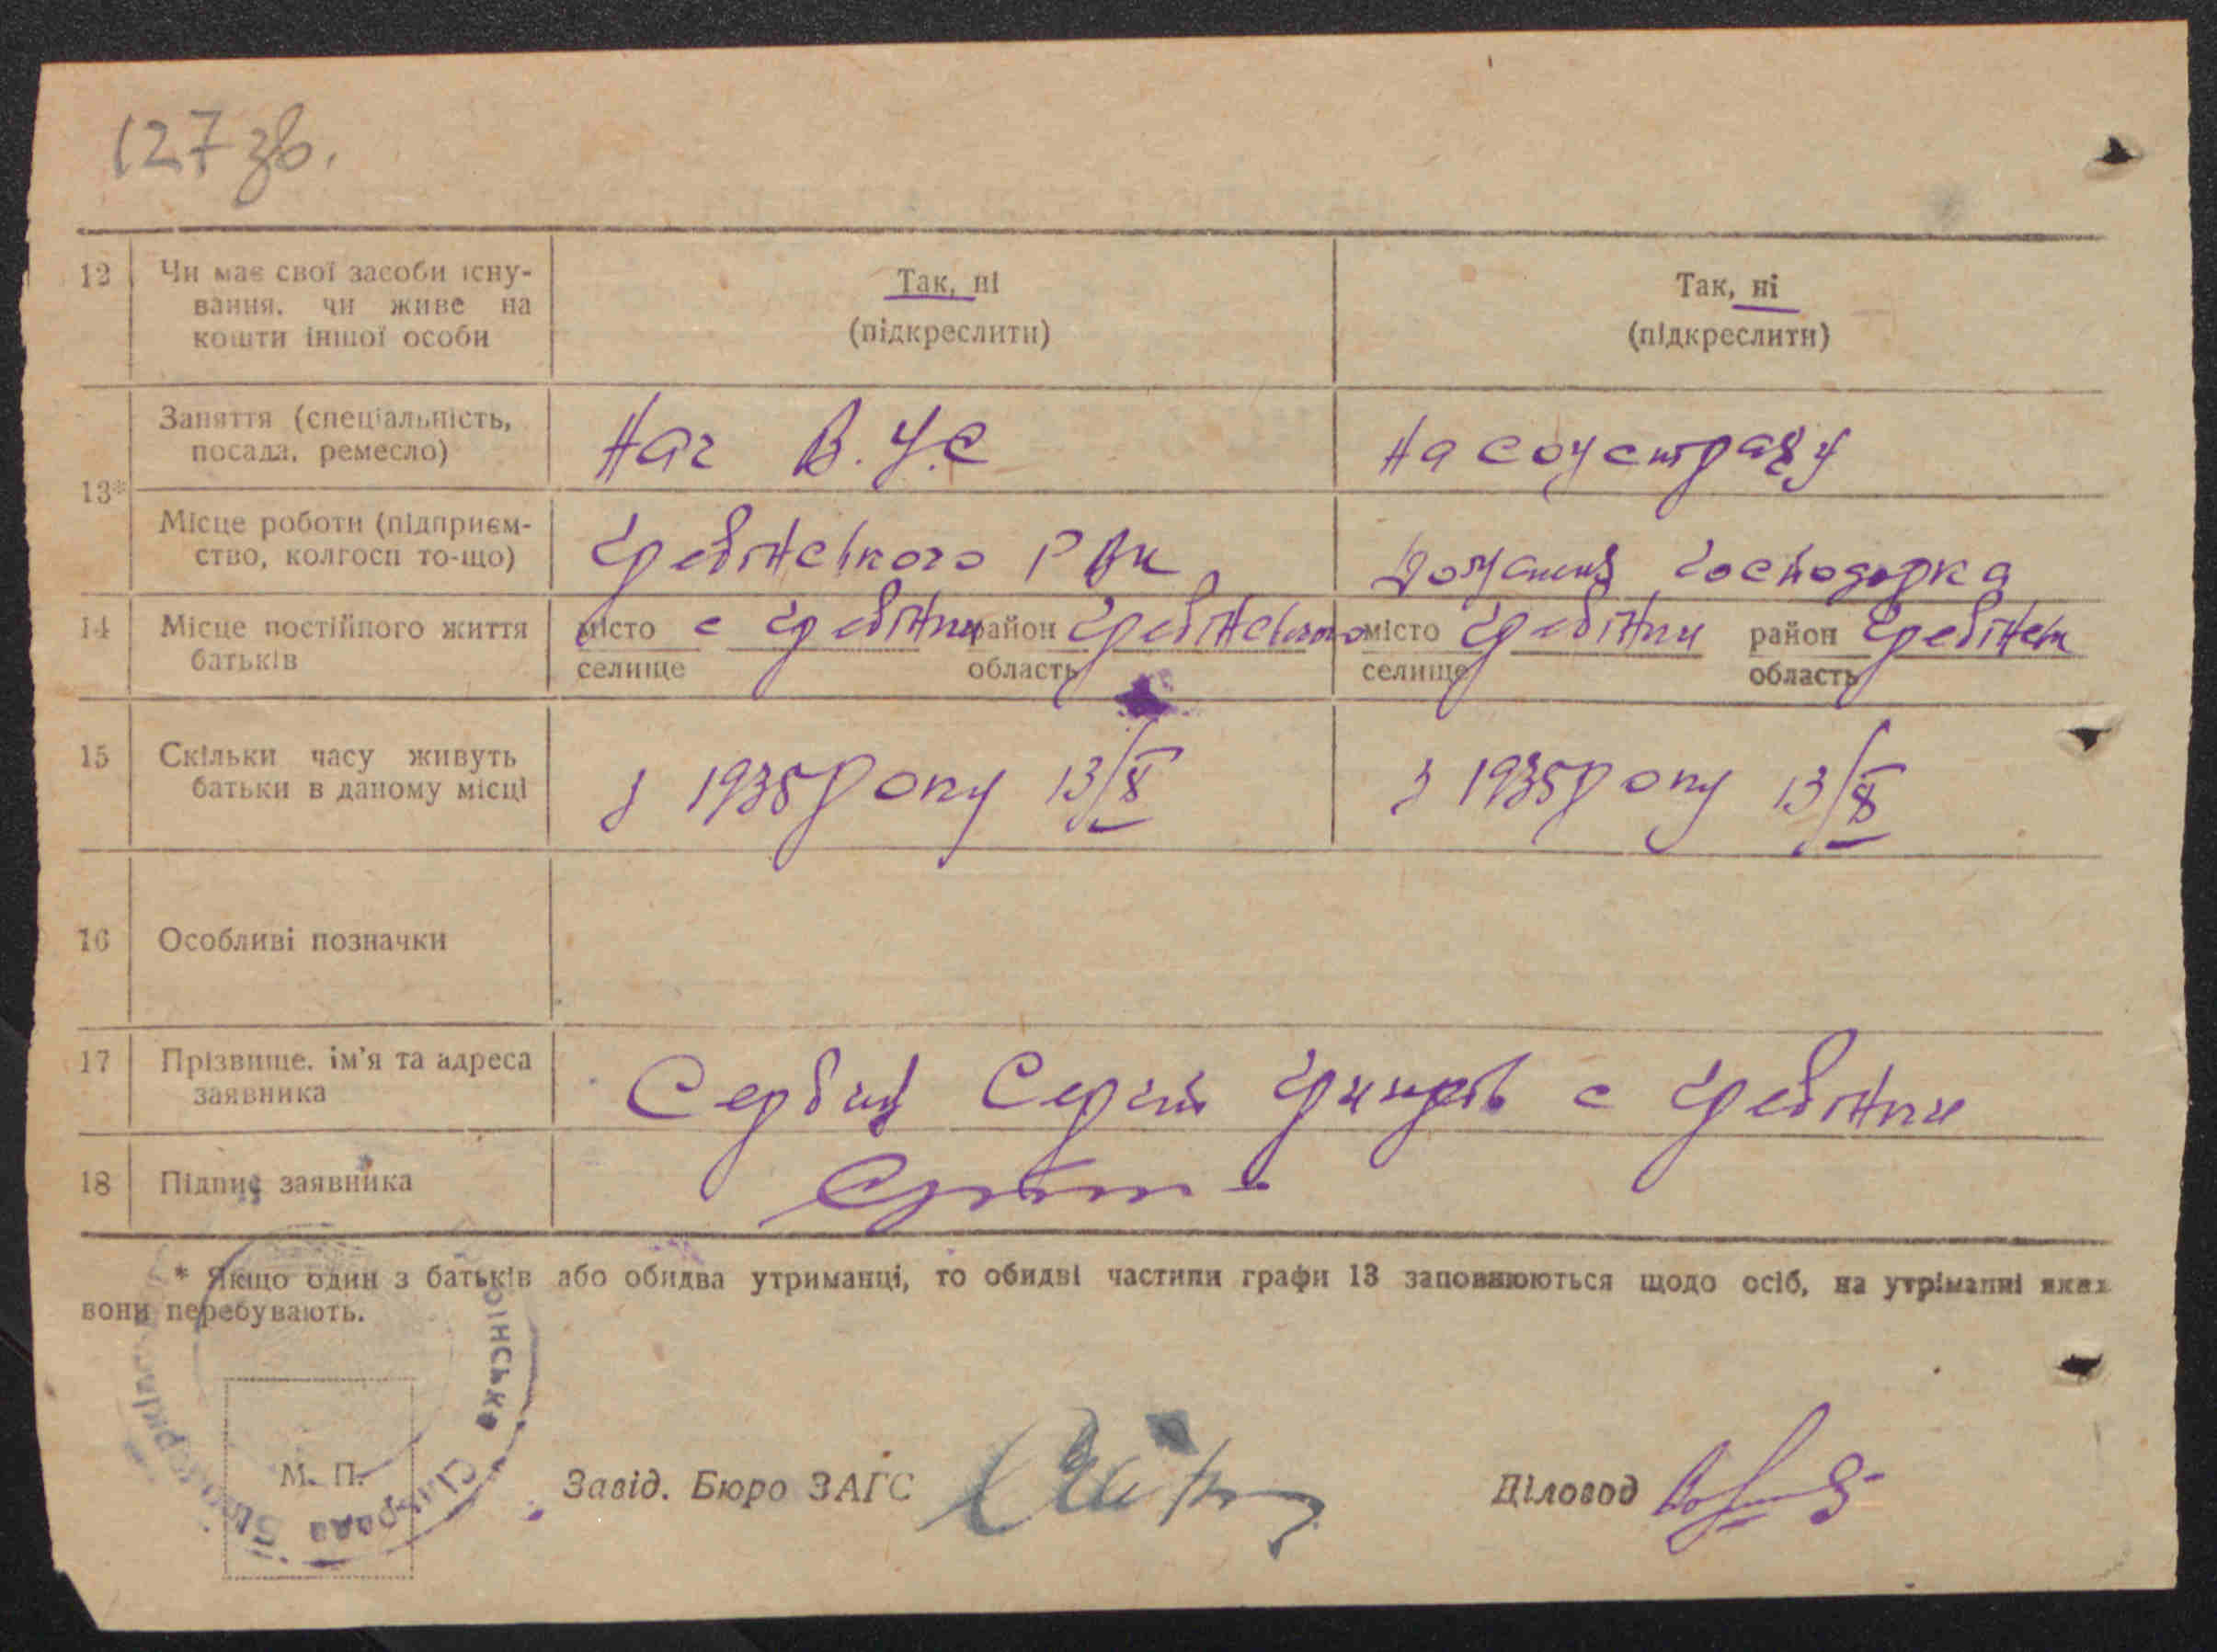 127 зв.
12 Чи має свої засоби існу-
вання, чи живе на
кошти іншої особи
Так, ні
(підкреслити)
Так, ні
(підкреслити)
13*
Заняття (спеціальність,
посада, ремесло)
Нач В.У.С
На соцстраху
Місце роботи (підприєм-
ство, колгосп то-що)
Гребінського РВК
Домашня господарка
14 Місце постійного життя
батьків
місто с Гребінки район Гребінського
селище область
місто Гребінки район Гребінськ
селище область
15 Скільки часу живуть
батьки в даному місці
з 1935 року 13/X
з 1935 року 13/X
16 Особливі позначки
17 Прізвище, ім'я та адреса
заявника
Сергій с Гребінки
18 Підпис заявника
* Якщо один з батьків або обидва утриманці, то обидві частини графи 13 заповнюються щодо осіб, на утріманні яких
вони перебувають.
М. П.
Сільрада
Завід. Бюро ЗАГС
Діловод